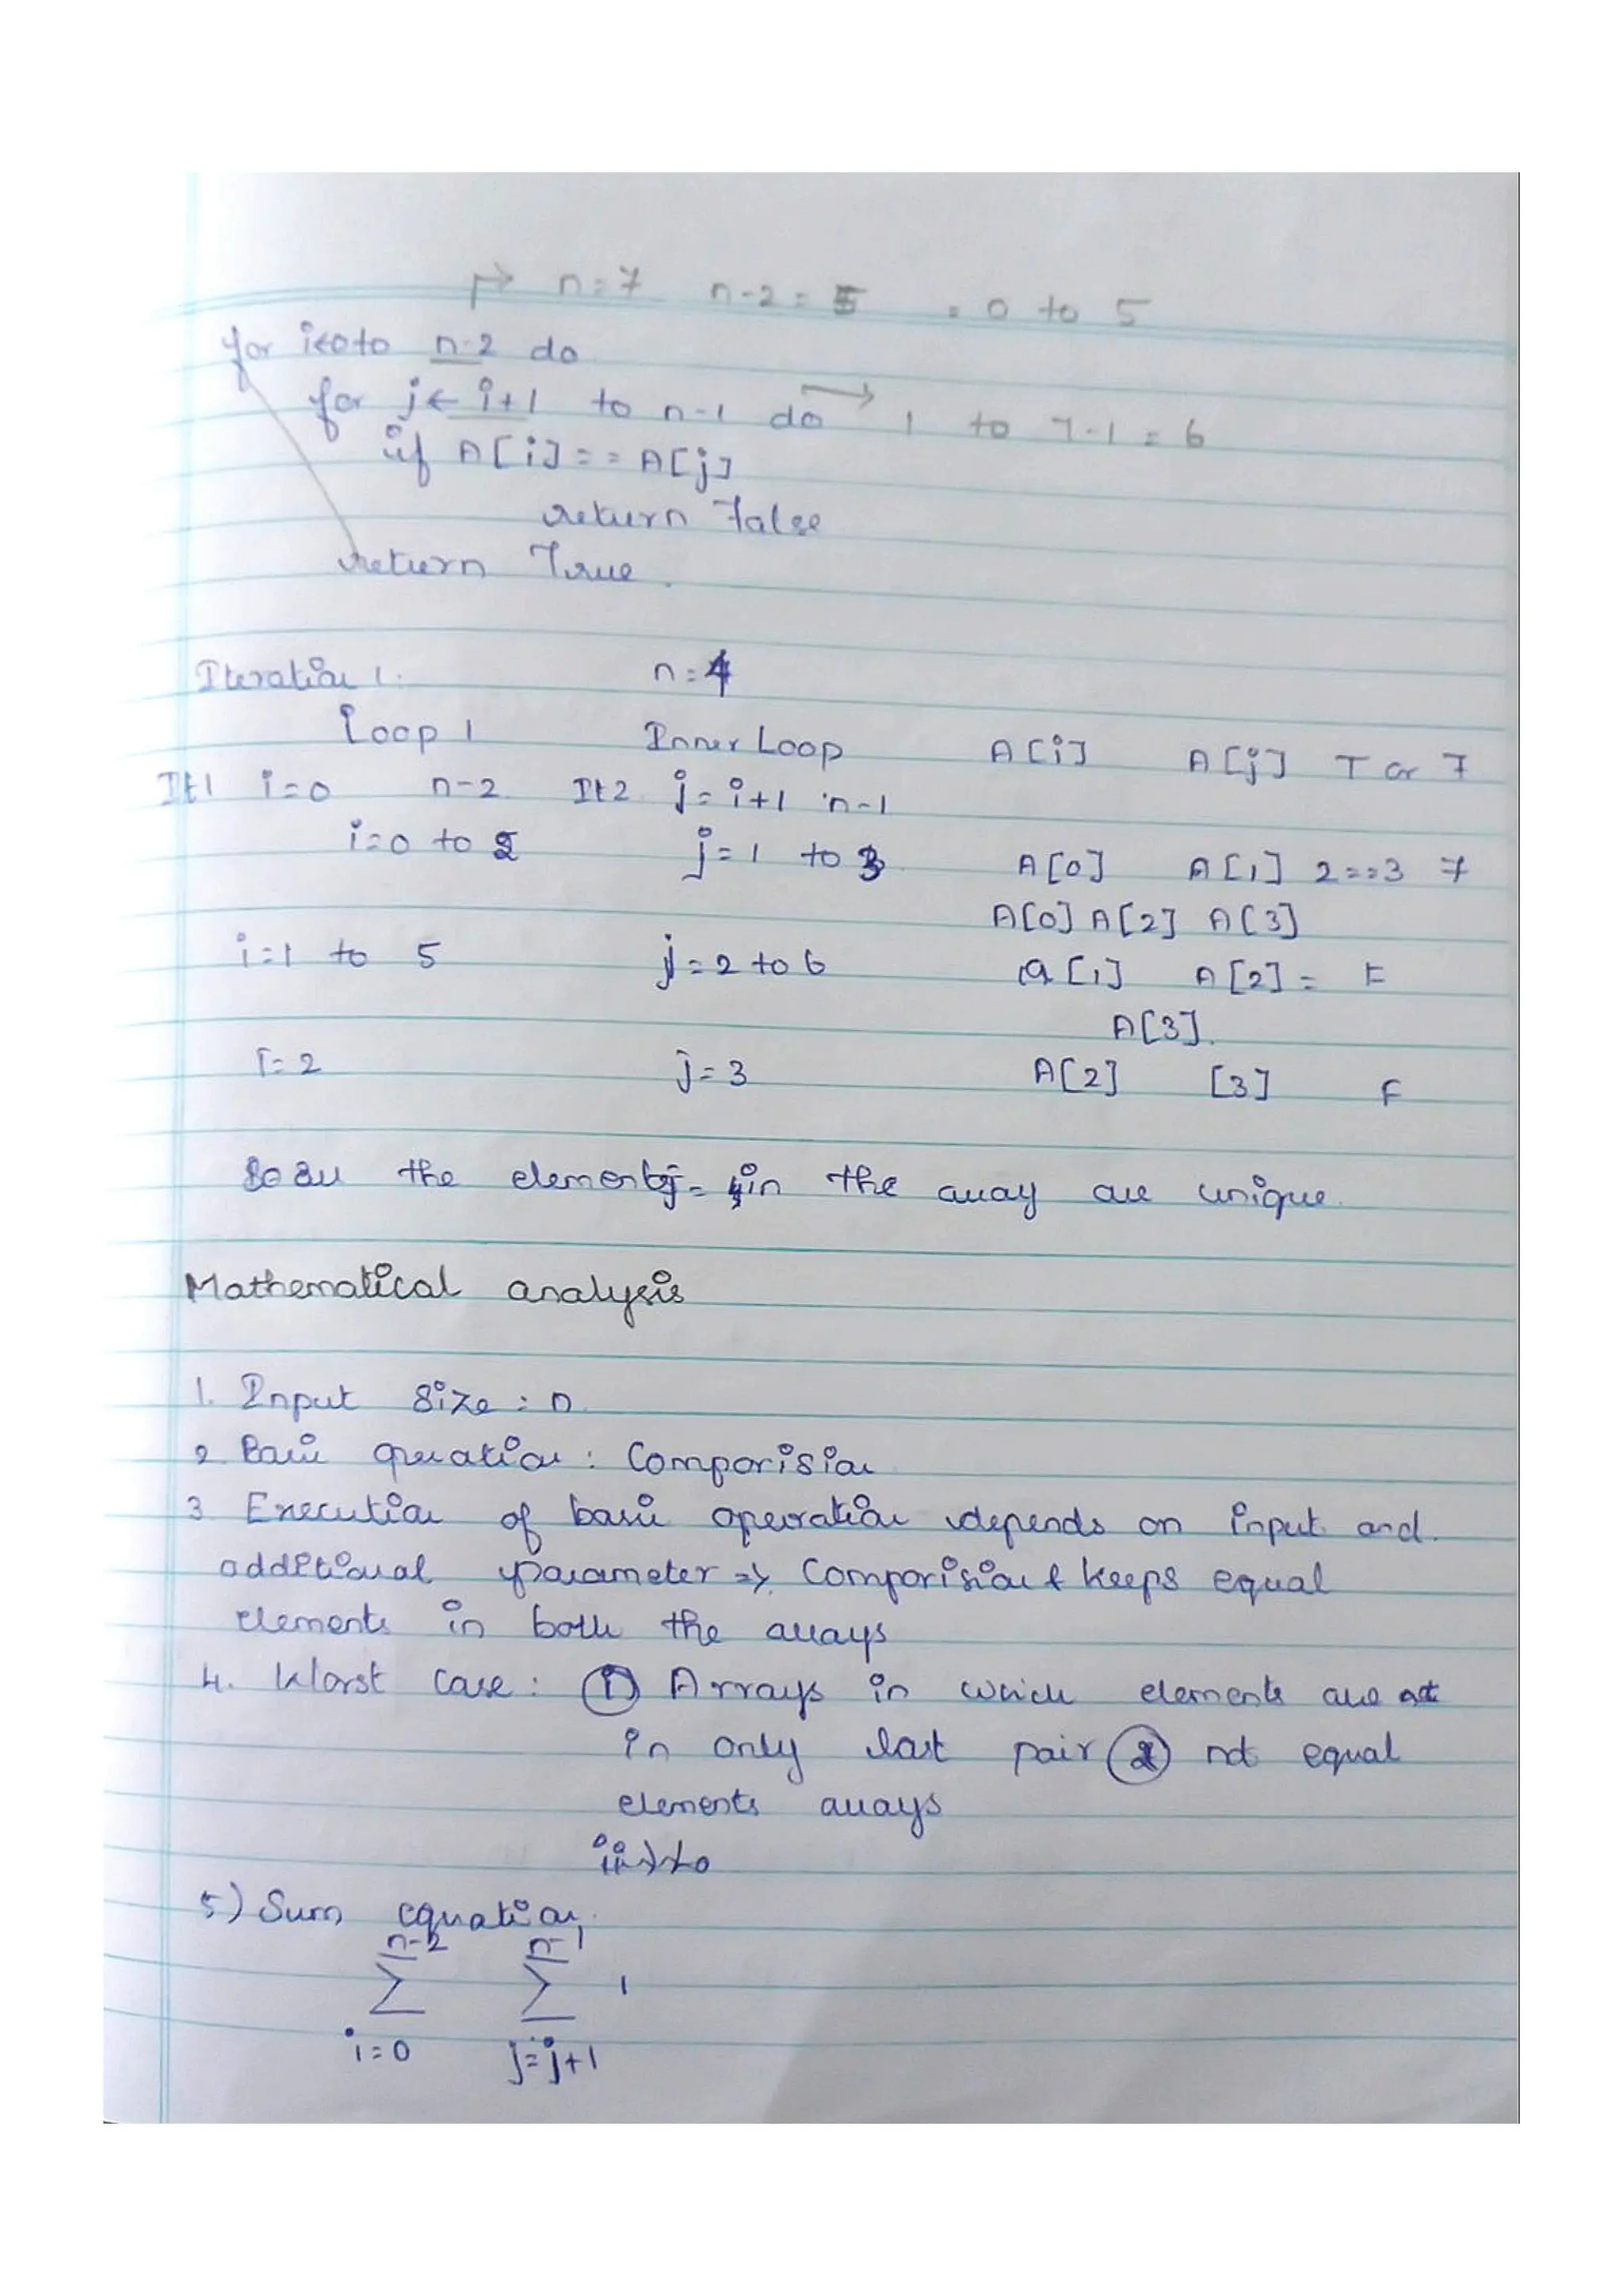 n=7 n-2=5 = 0 to 5
for i←0 to n-2 do
for j← i+1 to n-1 do → 1 to 7-1 = 6
if A[i]==A[j]
return False
return True.
Iteration 1. n=4
Loop 1 Inner Loop A[i] A[j] T or F
It1 i=0 n-2 It2 j=i+1 n-1
i=0 to 2 j=1 to 3 A[0] A[1] 2==3 F
A[0] A[2] A[3]
i=1 to 5 j=2 to 6 A[1] A[2] = F
A[3].
I=2 j=3 A[2] [3] F
So all the elements in the array are unique.
Mathematical analysis
1. Input size : n.
2. Basic operation : Comparision
3. Execution of basic operation depends on input and.
additional parameter => Comparision & keeps equal
elements in both the arrays
4. Worst case : ① Arrays in which elements are not
in only last pair ② not equal
elements arrays
5) Sum equation.
n-2 n-1
∑ ∑ 1
i=0 j=j+1